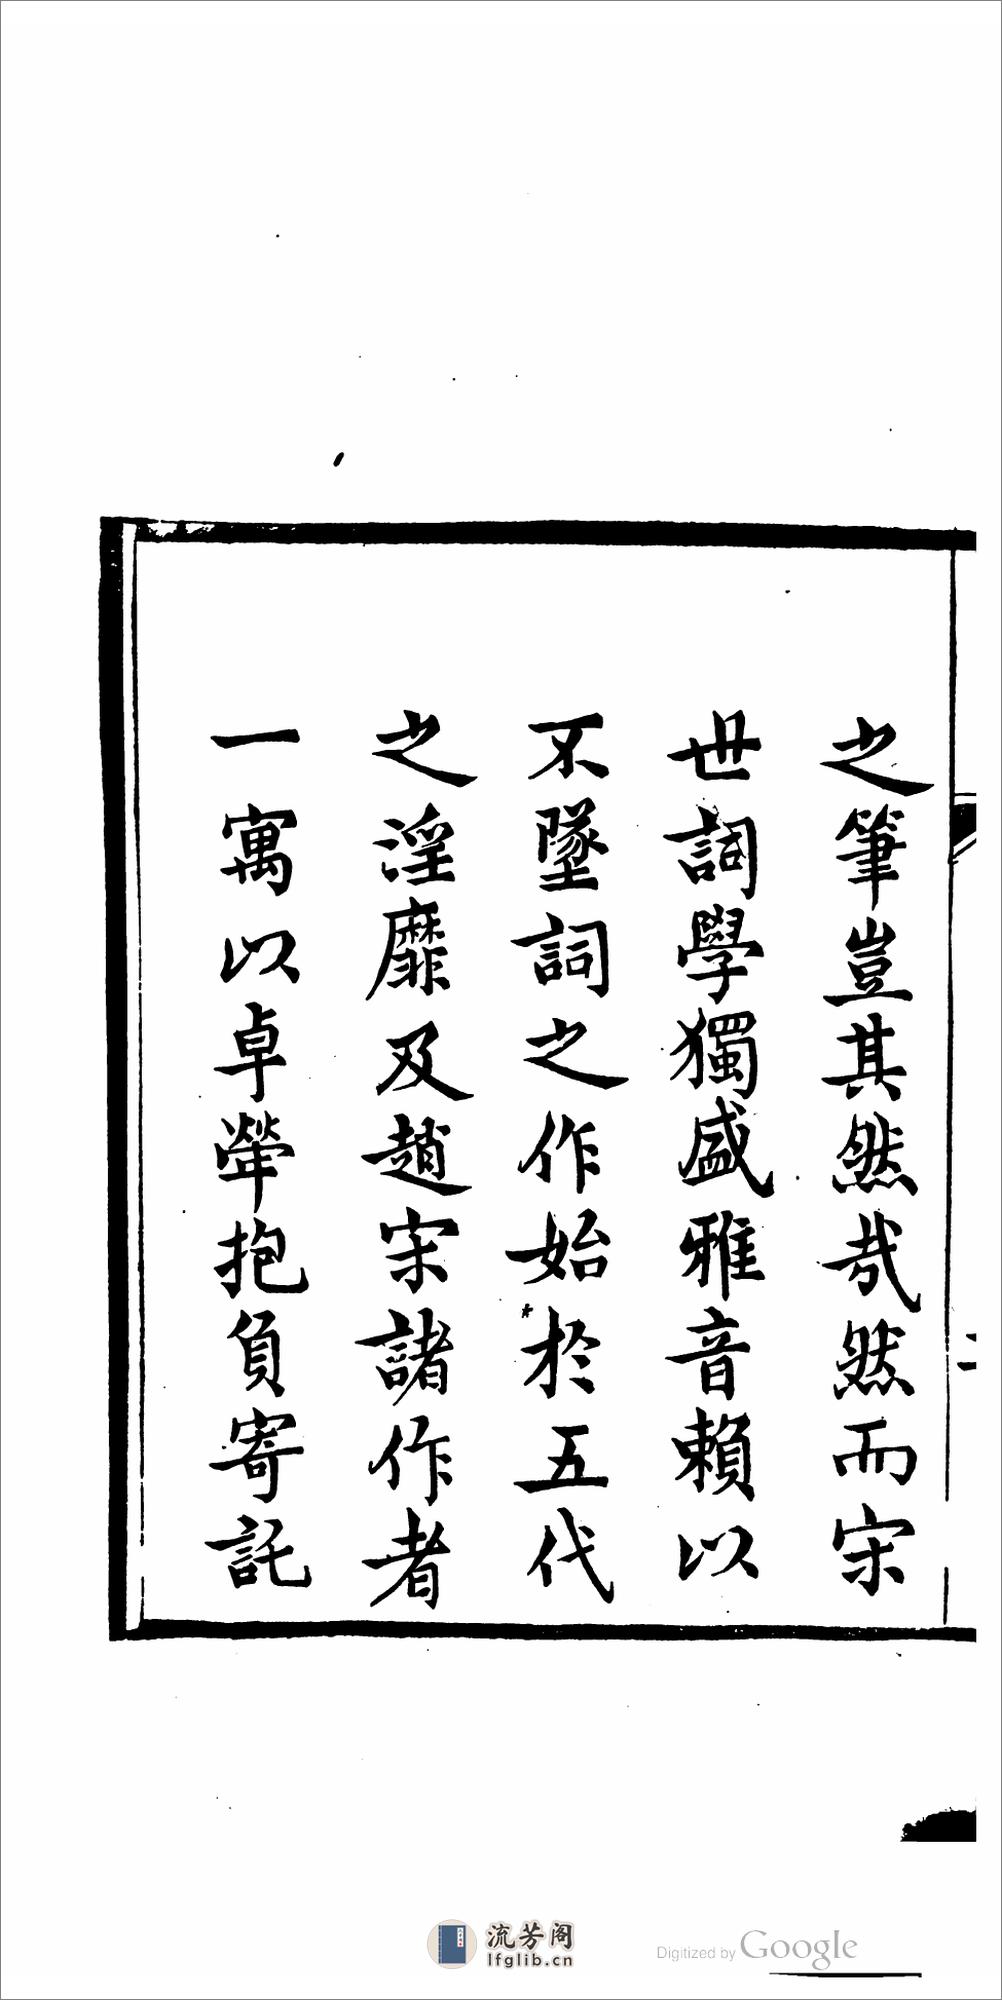 之筆豈其然哉然而宋
世詞學獨盛雅音賴以
不墜詞之作始於五代
之淫靡及趙宋諸作者
一寓以卓犖抱負寄託
二
流芳阁
lfglib.cn
Digitized by Google